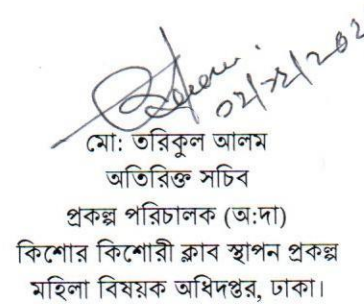 মো: তরিকুল আলম
অতিরিক্ত সচিব
প্রকল্প পরিচালক (অ:দা)
কিশোর কিশোরী ক্লাব স্থাপন প্রকল্প
মহিলা বিষয়ক অধিদপ্তর, ঢাকা।